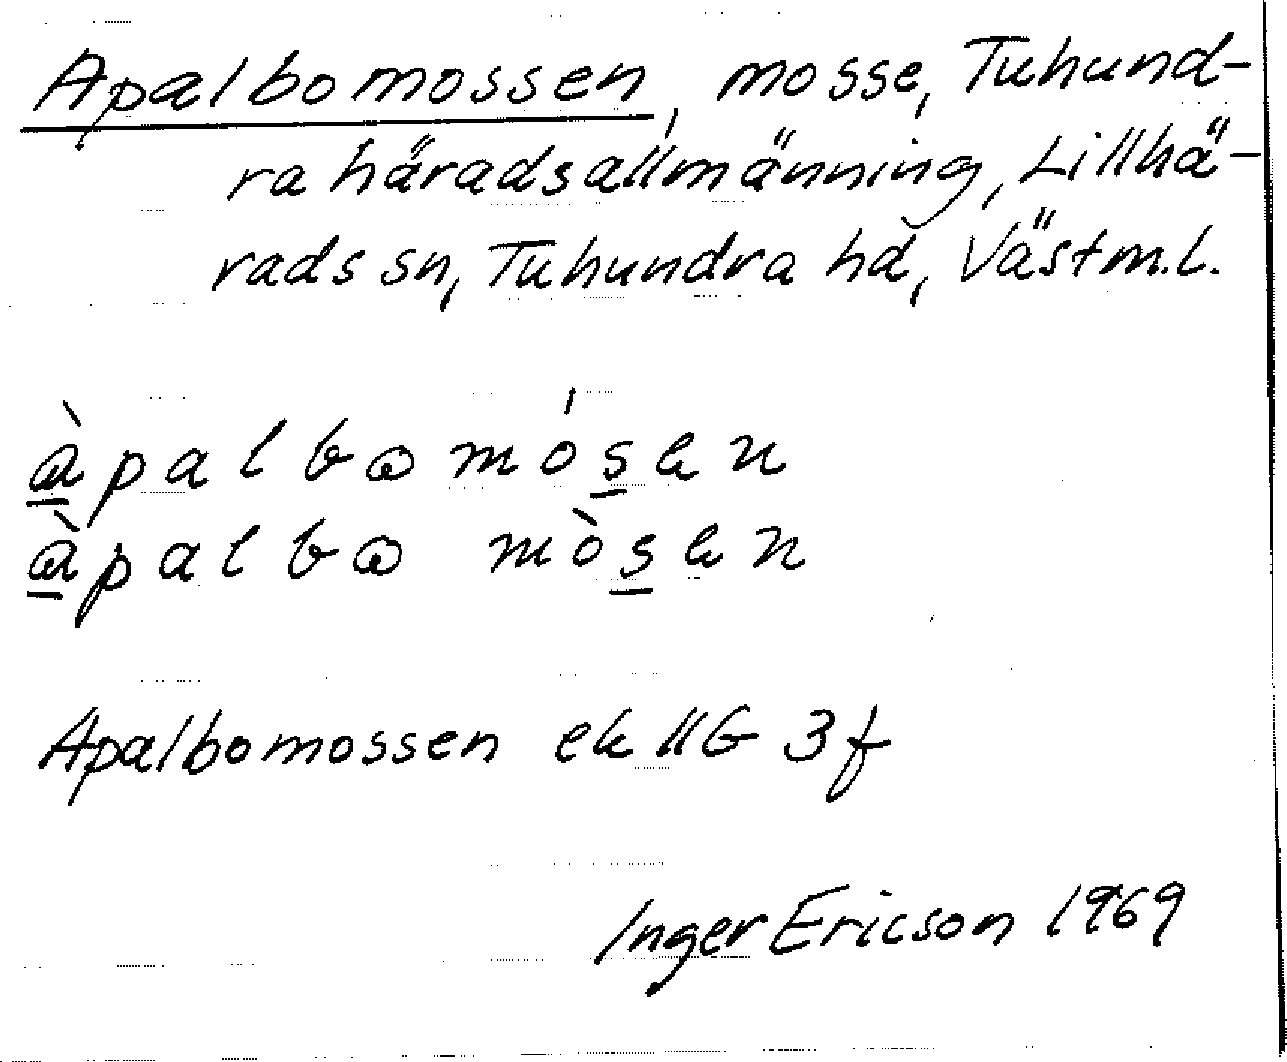 Apalbomossen, mosse, Tuhund-
ra häradsallmänning, Lillhä-
rads sn, Tuhundra hd, Västm.l.
àpalbωmósen
àpalbω mòsen
Apalbomossen ek 11G 3f
Inger Ericson 1969